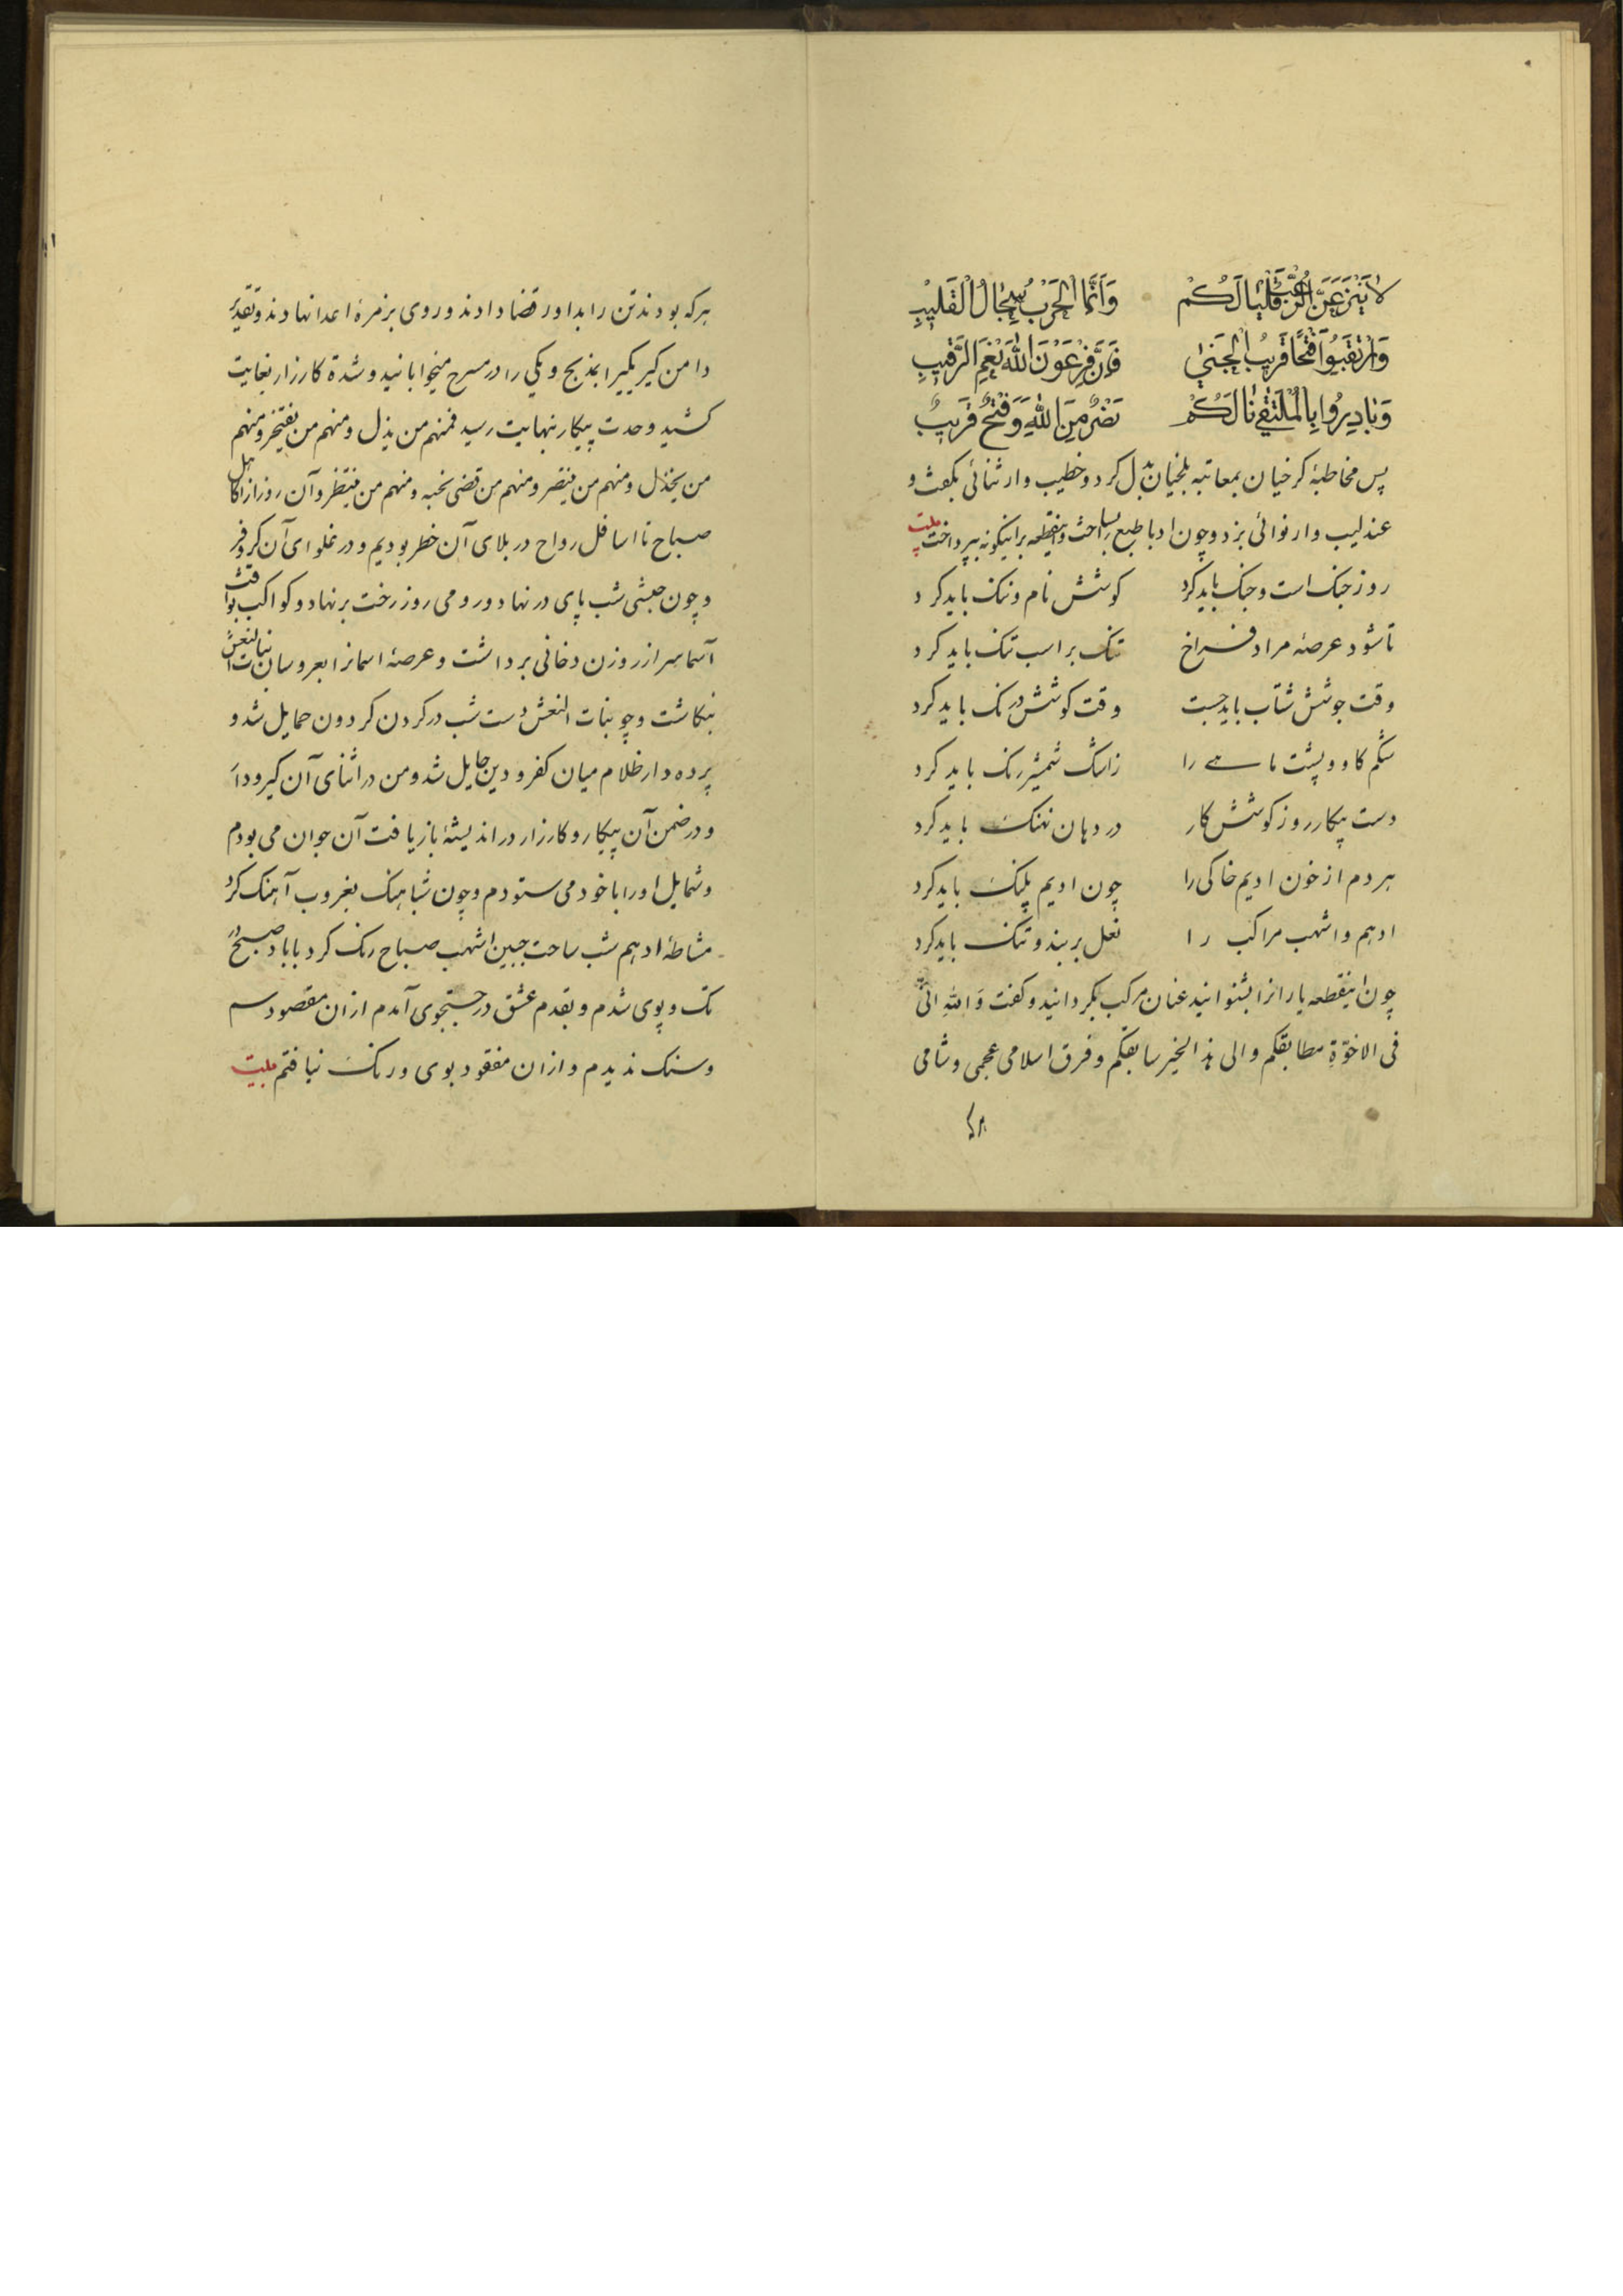 لا يَنْزِعَنَّ الرُّعْبُ قَلْبًا لَكُمْ وَاَنَّمَا الْحَرْبُ سِجَالُ الْقَلِيْبِ
وَارْتَقِبُوا فَتْحًا قَرِيْبُ الْجَنىٰ فَاِنَّ عَوْنَ اللّٰهِ نِعْمَ الرَّقِيْبِ
وَبَادِرُوا يَا لَكُمْ نَصْرٌ مِنَ اللّٰهِ وَفَتْحٌ قَرِيْبٌ
پس مخاطبهٔ کرخیان بمعاتبه بلخیان بدل کرد و خطیب وار ثنائی بکفت و
عندلیب وار نوائی بزد و چون ادبا طبع بپرداخت
روز جنک است و جنک باید کرد کوشش نام و ننک باید کرد
تا شود عرصهٔ مراد فراخ تنک بر اسب تنک باید کرد
وقت جوشش شتاب باید جست وقت کوشش درنک باید کرد
شکم کاو و پشت ماهی را زاشک شمشیر رنک باید کرد
دست پیکار روز کوشش کار در دهان نهنک باید کرد
هر دم از خون ادیم خاکی را چون ادیم پلنک باید کرد
ادهم و اشهب مراکب را نعل بربند و تنک باید کرد
چون اینقطعه یارانرا بشنوانید عنان مرکب بکردانید و کفت وَاللهِ انّی
فی الاخوّةِ مطابقکم والی هذا الخیر سابقکم و فرق اسلامی عجمی و شامی
هر که بودند تن را بداور قضا دادند و روی بزمرهٔ اعدا نهادند و تقدیر
دامن کیر یکیرا بمذبح و یکی را در مسرح میخوابانید و شدة کارزار بغایت
کشید و حدت پیکار بنهایت رسید فمنهم من یذل و منهم من یفتخر و منهم
من یخذل و منهم من ینتصر و منهم من قضی نحبه و منهم من ینتظر و آن روز از اکاهل
صباح تا اسافل رواح در بلای آن خطر بودیم و در غلوای آن کر و فر
و چون حبشی شب پای در نهاد و رومی روز رخت برنهاد و کواکب ثواقب
آسما سر از روزن دخانی برداشت و عرصهٔ اسمانرا بعروسان بنات النعش
بنکاشت و چو بنات النعش دست شب در کردن کردون حمایل شد و
پرده دار ظلام میان کفر و دین حایل شد و من در اثنای آن کیر و دار
و در ضمن آن پیکار و کارزار در اندیشهٔ بازیافت آن جوان می بودم
و شمایل او را با خود می ستودم و چون شباهنک بغروب آهنک کرد
مشاطهٔ ادهم شب ساحت جبین اشهب صباح رنک کرد با باد صبح در
تک و پوی شدم و بقدم عشق در جستجوی آمدم از ان مقصود سم
و سنک ندیدم و از ان مفقود بوی و رنک نیافتم ملبیت